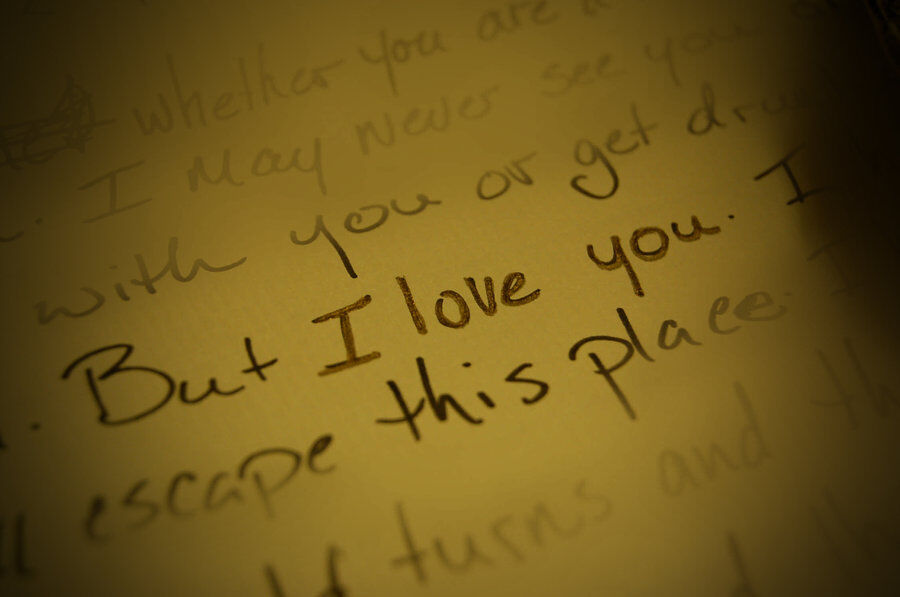 whether you are a
. I May Never see you
with you or get
. But I love you. I
escape this place. I
turns and